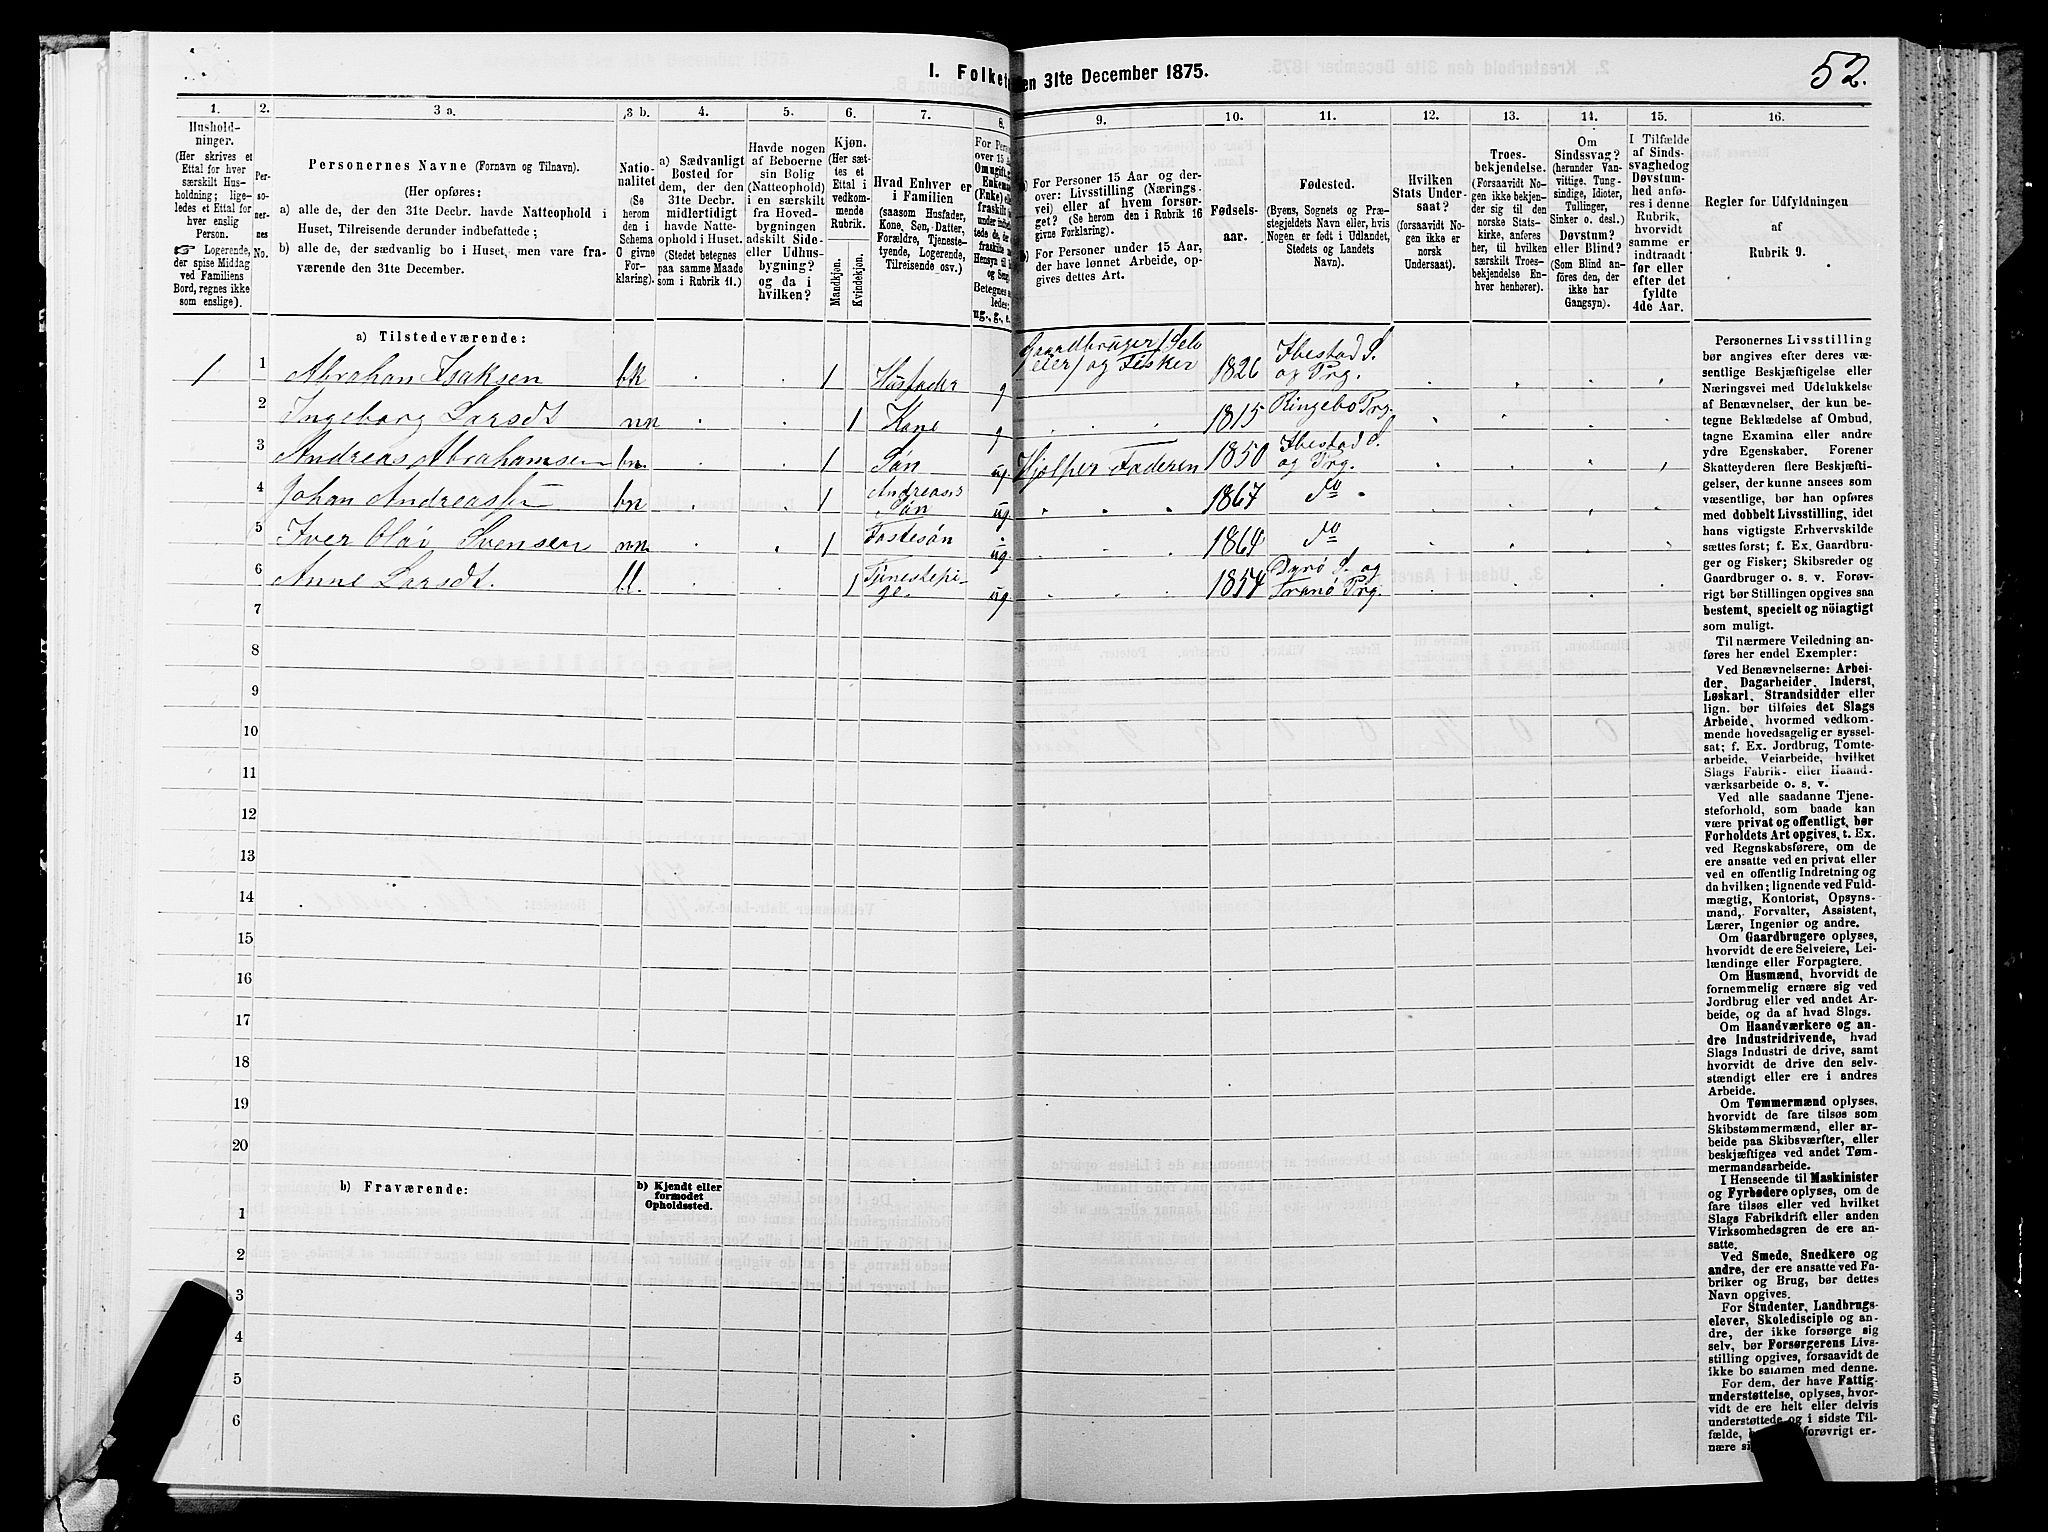 52.
I. Folket
en 31te December 1875.
1.
2.
3 a.
3 b.
4.
5.
6.
7.
8.
9.
10.
11.
12.
13.
14.
15.
16.
Hushold-
ninger.
(Her skrives et
Ettal for hver
særskilt Hus-
holdning; lige-
ledes et Ettal for
hver enslig
Person.
☞ Logerende,
der spise Middag
ved Familiens
Bord, regnes ikke
som enslige).
Per-
so-
ner-
nes
No.
Personernes Navne (Fornavn og Tilnavn).
(Her opføres:
a) alle de, der den 31te Decbr. havde Natteophold i
Huset, Tilreisende derunder indbefattede;
b) alle de, der sædvanlig bo i Huset, men vare fra-
værende den 31te December.
Natio-
nalitet
(Se
herom
den i
Schema
C givne
For-
klaring).
a) Sædvanligt
Bosted for
dem, der den
31te Decbr.
midlertidigt
havde Natte-
ophold i Huset.
(Stedet betegnes
paa samme Maade
som i Rubrik 11.)
Havde nogen
af Beboerne
sin Bolig
(Natteophold)
i en særskilt
fra Hoved-
bygningen
adskilt Side-
eller Udhus-
bygning?
og da i
hvilken?
Kjøn.
(Her sæt-
tes et
Ettal i
vedkom-
mende
Rubrik.
Mandkjøn.
Kvindekjøn.
Hvad Enhver er
i Familien
(saasom Husfader,
Kone, Søn, Datter,
Forældre, Tjeneste-
tyende, Logerende,
Tilreisende osv.)
For Pers
over 15 A
Om ugift, g
Enkema
(Enke) e
fraskilt
under indbe
tede de,
fraskilte
Hensyn til
og Seng
Betegnes
ledes:
ug., g., e.
a) For Personer 15 Aar og der-
over: Livsstilling (Nærings-
vei) eller af hvem forsør-
get? (Se herom den i Rubrik 16
givne Forklaring).
b) For Personer under 15 Aar,
der have lønnet Arbeide, op-
gives dettes Art.
Fødsels-
aar.
Fødested.
(Byens, Sognets og Præ-
stegjeldets Navn eller, hvis
Nogen er født i Udlandet,
Stedets og Landets
Navn).
Hvilken
Stats Under-
saat?
(forsaavidt No-
gen ikke er
norsk
Undersaat).
Troes-
bekjendelse.
(Forsaavidt No-
gen ikke bekjen-
der sig til den
norske Stats-
kirke, anføres
her, til hvilken
særskilt Troes-
bekjendelse En-
hver henhører).
Om
Sindssvag?
(herunder Van-
vittige, Tung-
sindige, Idioter,
Tullinger,
Sinker o. desl.)
Døvstum?
eller Blind?
(Som Blind an-
føres den, der
ikke har
Gangsyn).
I Tilfælde
af Sinds-
svaghed og
Døvstum-
hed anfø-
res i denne
Rubrik,
hvorvidt
samme er
indtraadt
før eller
efter det
fyldte
4de Aar.
Regler for Udfyldningen
af
Rubrik 9.
a) Tilstedeværende:
1 1 Abrahan Isaksen bk 1 Husfader g Gaardbruger (Selv
eier) og Fisker 1826 Ibestad S.
og Prg.
2 Ingeborg Larsdt nn 1 Kone g 1815 Ringebo Prg.
3 Andreas Abrahamsen bn 1 Søn ug. Hjelper Faderen 1850 Ibestad S.
og Prg.
4 Johan Andreassen bn 1 Andreas's
Søn ug. 1867 do
5 Iver Olai Svensen nn 1 Fostesøn ug. 1864 do
6 Anne Larsdt. ll. 1 Tjenestepi-
ge ug. 1854 Dyrø S. og
Tranø Prg.
7
8
9
10
11
12
13
14
15
16
17
18
19
20
b) Fraværende:
b) Kjendt eller
formodet
Opholdssted.
1
2
3
4
5
6
Personernes Livsstilling
bør angives efter deres væ-
sentlige Beskjæftigelse eller
Næringsvei med Udelukkelse
af Benævnelser, der kun be-
tegne Beklædelse af Ombud,
tagne Examina eller andre
ydre Egenskaber. Forener
Skatteyderen flere Beskjæfti-
gelser, der kunne ansees som
væsentlige, bør han opføres
med dobbelt Livsstilling, idet
hans vigtigste Erhvervskilde
sættes først; f. Ex. Gaardbru-
ger og Fisker; Skibsreder og
Gaardbruger o. s. v. Forøv-
rigt bør Stillingen opgives saa
bestemt, specielt og nöiagtigt
som muligt.
Til nærmere Veiledning an-
føres her endel Exempler:
Ved Benævnelserne: Arbei-
der, Dagarbeider, Inderst,
Løskarl, Strandsidder eller
lign. bør tilføies det Slags
Arbeide, hvormed vedkom-
mende hovedsagelig er syssel-
sat; f. Ex. Jordbrug, Tomte-
arbeide, Veiarbeide, hvilket
Slags Fabrik- eller Haand-
værksarbeide o. s. v.
Ved alle saadanne Tjene-
steforhold, som baade kan
være privat og offentligt, bør
Forholdets Art opgives, t. Ex.
ved Regnskabsførere, om de
ere ansatte ved en privat eller
ved en offentlig Indretning og
da hvilken; lignende ved Fuld-
mægtig, Kontorist, Opsyns-
mand, Forvalter, Assistent,
Lærer, Ingeniør og andre.
Om Gaardbrugere oplyses,
hvorvidt de ere Selveiere, Lei-
lændinge eller Forpagtere.
Om Husmænd, hvorvidt de
fornemmelig ernære sig ved
Jordbrug eller ved andet Ar-
beide, og da af hvad Slags.
Om Haandværkere og an-
dre Industridrivende, hvad
Slags Industri de drive, samt
hvorvidt de drive den selv-
stændigt eller ere i andres
Arbeide.
Om Tømmermænd oplyses,
hvorvidt de fare tilsøs som
Skibstømmermænd, eller ar-
beide paa Skibsværfter, eller
beskjæftiges ved andet Tøm-
mermandsarbeide.
I Henseende til Maskinister
og Fyrbødere oplyses, om de
fare tilsøs eller ved hvilket
Slags Fabrikdrift eller anden
Virksomhedsgren de ere an-
satte.
Ved Smede, Snedkere og
andre, der ere ansatte ved Fa-
briker og Brug, bør dettes
Navn opgives.
For Studenter, Landbrugs-
elever, Skoledisciple og an-
dre, der ikke forsørge sig
selv, bør Forsørgerens Livs-
stilling opgives, forsaavidt de
ikke bo sammen med denne.
For dem, der have Fattig-
understøttelse, oplyses, hvor-
vidt de ere helt eller delvis
understøttede og i sidste Til-
fælde, forøvrigt er-
nære si